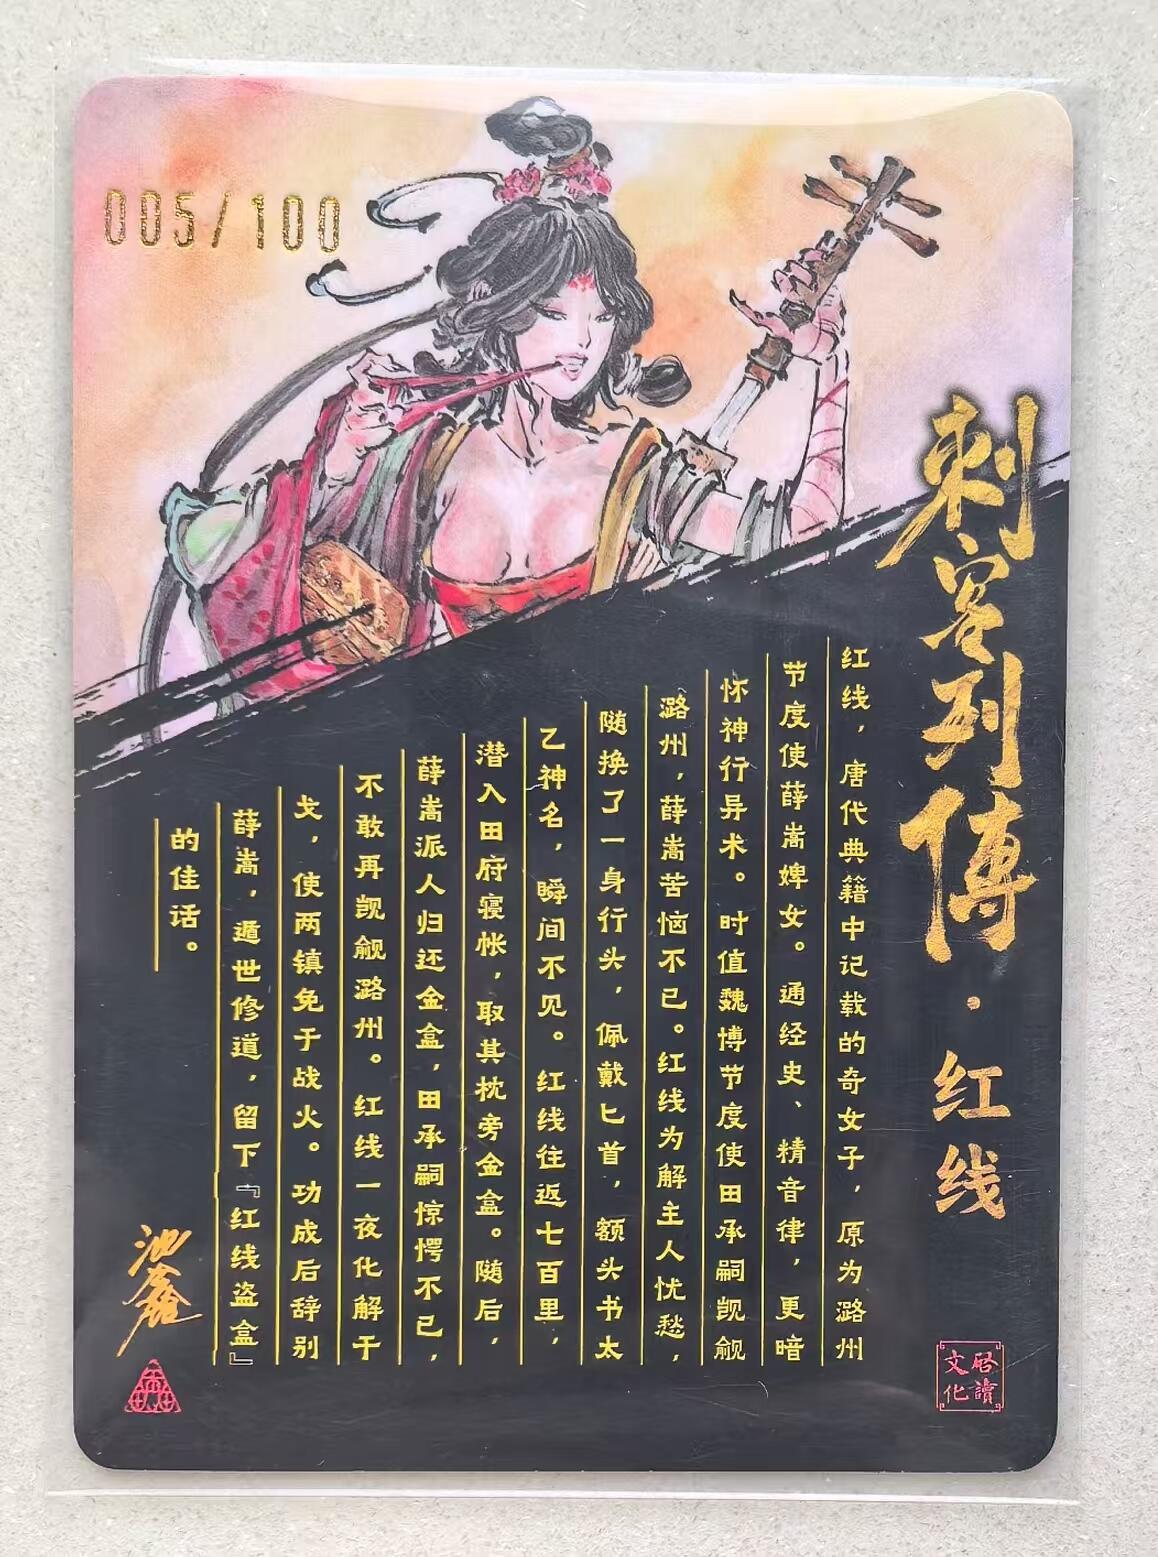 005/100
刺客列傳·红线
红线，唐代典籍中记载的奇女子，原为潞州
节度使薛嵩婢女。通经史、精音律，更暗
怀神行异术。时值魏博节度使田承嗣觊觎
潞州，薛嵩苦恼不已。红线为解主人忧愁，
随换了一身行头，佩戴匕首，额头书太
乙神名，瞬间不见。红线往返七百里，
潜入田府寝帐，取其枕旁金盒。随后，
薛嵩派人归还金盒，田承嗣惊愕不已，
不敢再觊觎潞州。红线一夜化解干
戈，使两镇免于战火。功成后辞别
薛嵩，遁世修道，留下『红线盗盒』
的佳话。
启讀
文化